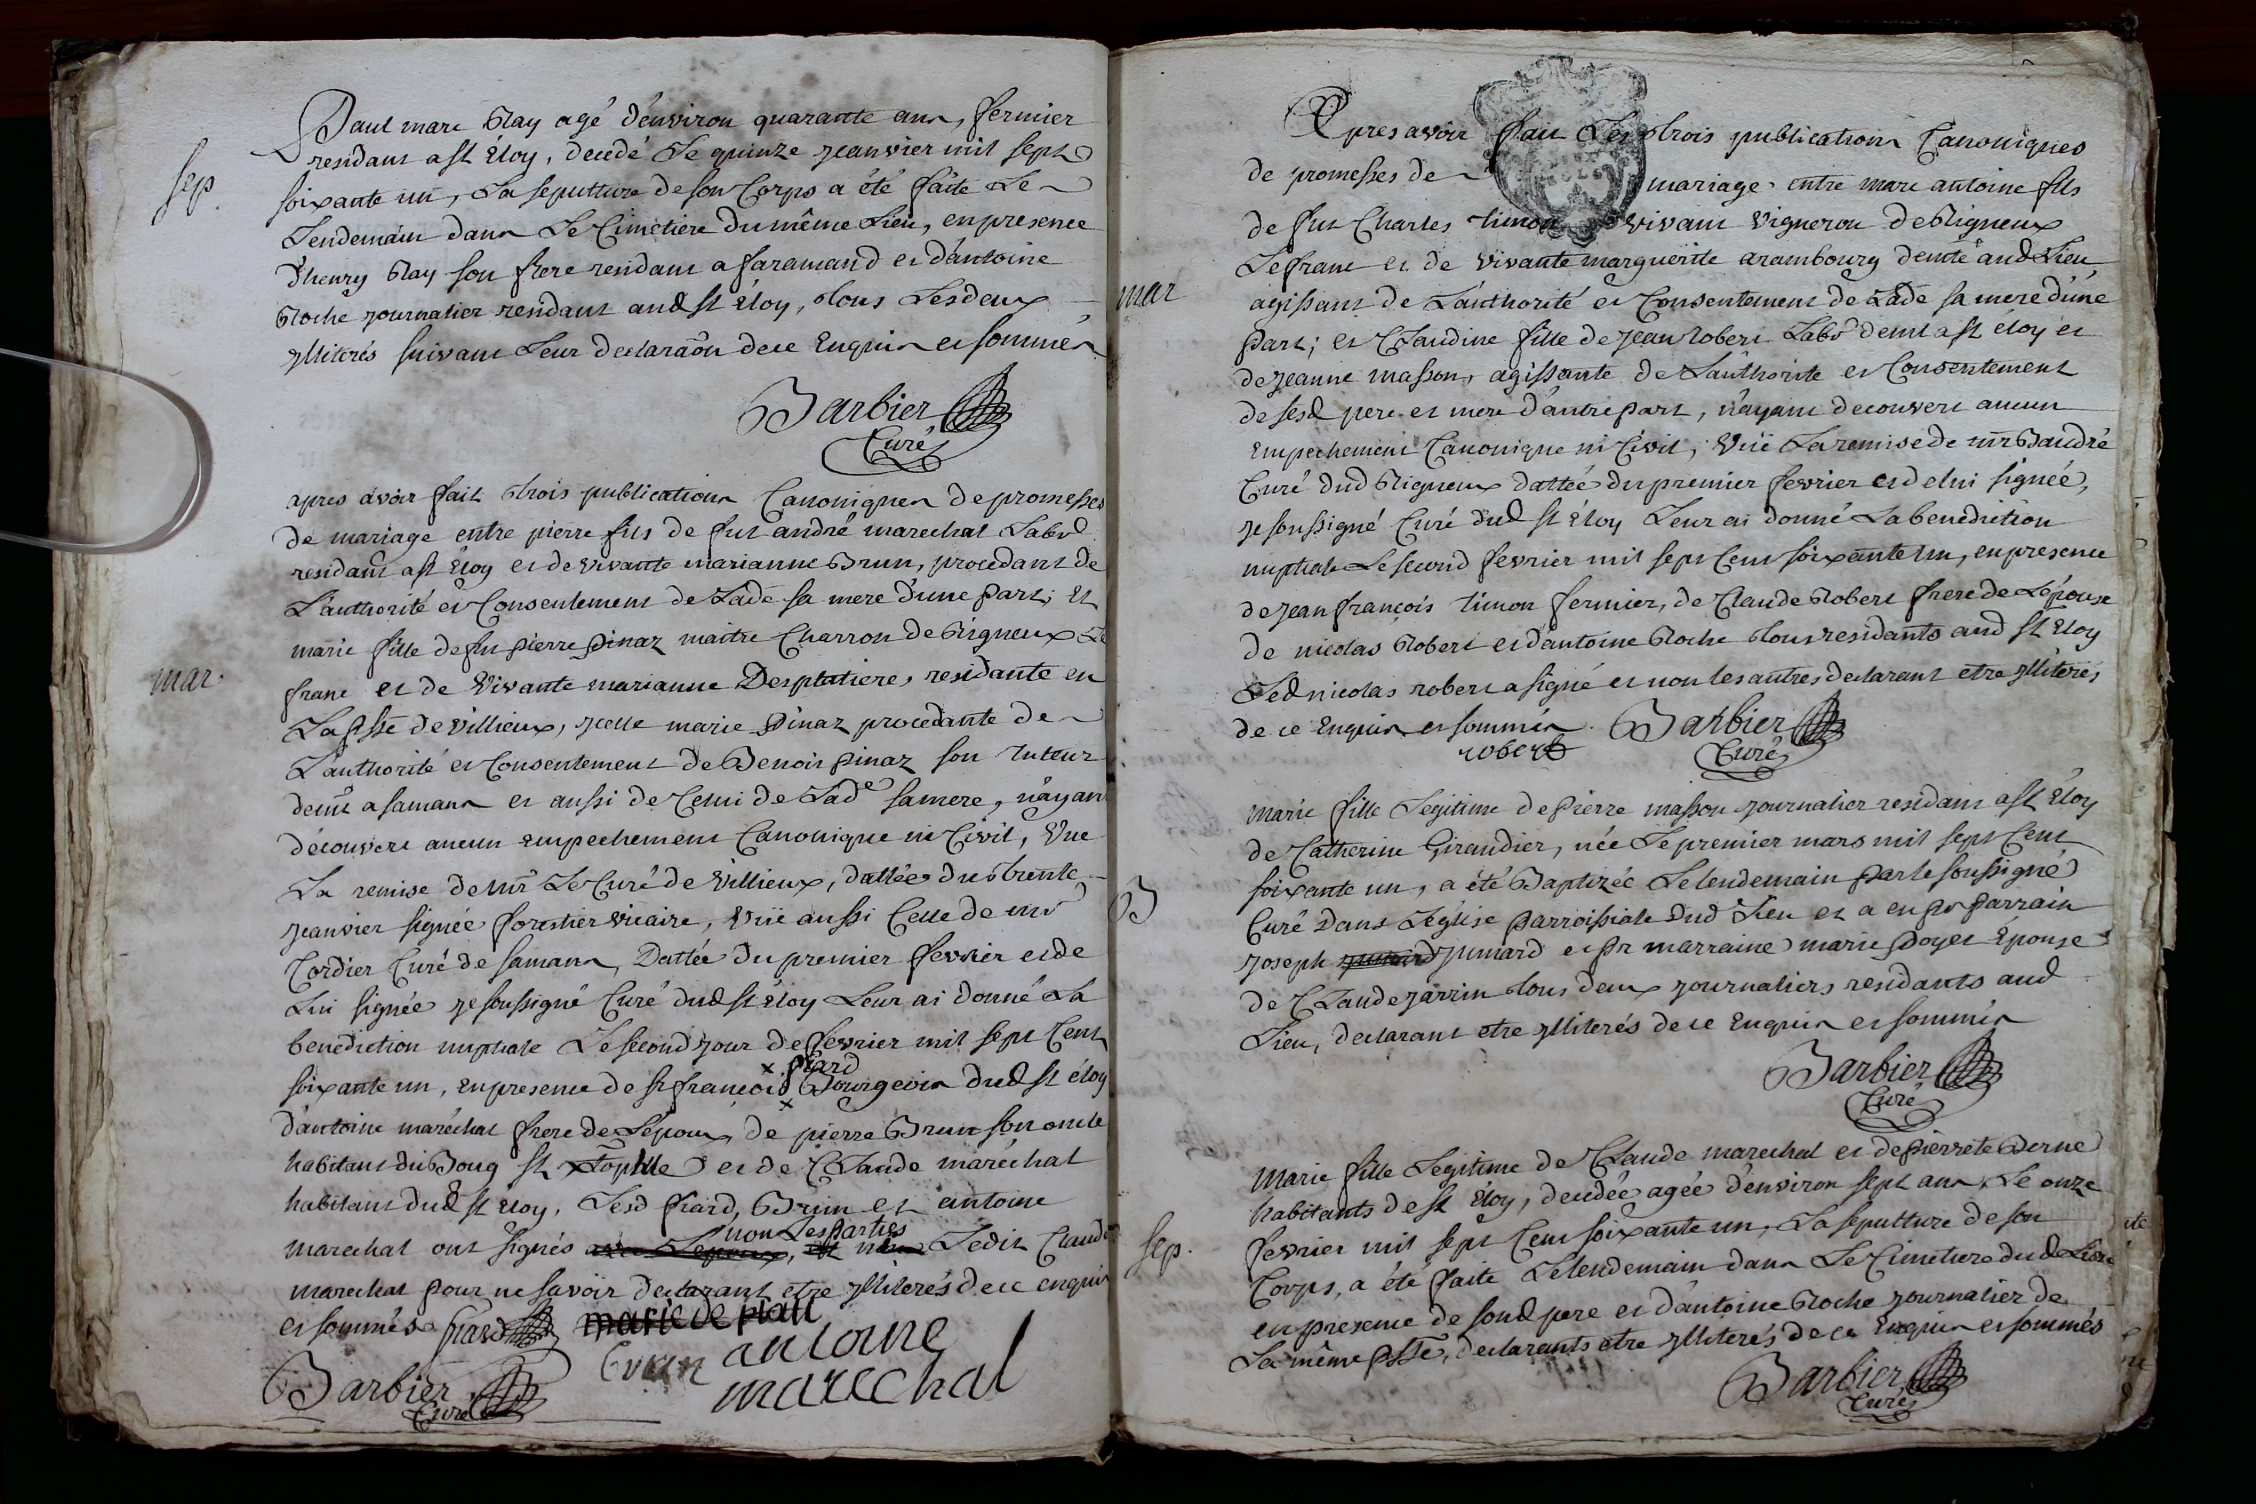 Paul marc Ray agé d'environ quarante ans, fermier
residant a St Eloy, decedé Le quinze Jeanvier mil sept
sep.
soixante un, La sepulture de son Corps a été faite Le
Lendemain dans Le Cimetiere du même Lieu, en presence
d'henry Ray son frere residant a faramand et d'antoine
Roche journalier residant aud St Eloy, tous Lesdeux
Illiterés suivant Leur declaraôn dece Enquis et sommés
Barbier
Curé
apres avoir fait trois publications Canoniques de promesses
de mariage entre pierre fils de fut andré marechal Labr
residant a St Eloy et de vivante marianne Brun, procedant de
L'authorité et Consentement de Lade sa mere d'une part; Et
marie fille de fut pierre pinaz maitre Charron de Rigneux Le
mar.
franc et de Vivante marianne Desplatiere, residante en
La psse de villieux, jcelle marie pinaz procedante de
L'authorité et Consentement de Benoit pinaz son tuteur
demt a samans et aussi de Celui de Lade sa mere, n'ayant
découvert aucun empechement Canonique ni Civil, Vue
La remise de mr Le Curé de Villieux, dattée du trente
Jeanvier signée forestier vicaire, Vüe aussi Celle de mr
Cordier Curé de samans, Dattée du premier fevrier et de
Lui signée je soussigné Curé dud St Eloy Leur ai donné La
benediction nuptiale Le second jour de fevrier mil sept Cent
x piard
soixante un, en presence de Sr françois Bourgeois dud St éloy
x
d'antoine maréchal frere de L'epoux, de pierre Brun son oncle
habitant du Bourg St et de Claude maréchal
habitant dud St Eloy, Lesd piard, Brun et antoine
non Les parties
marechal ont signés avec Lepoux, et Ledit Claude
marechal pour ne savoir declarant etre Illiterés dece enquis
et sommés piard
Brun antoine
marechal
Barbier
Curé
Apres avoir fait Les trois publications Canoniques
de promesses de mariage entre marc antoine fils
de fut Charles timon vivant Vigneron de Rigneux
Le franc et de Vivante margueritte arambourg demte aud Lieu
mar
agissant de L'authorité et Consentement de Lade sa mere d'une
part; et Claudine fille de Jean Robert Labr demt a St éloy et
de Jeanne masson, agissante de L'authorité et Consentement
de sesd pere et mere d'autre part, n'ayant decouvert aucun
empechement Canonique ni Civil, Vüe La remise de mr Baudré
Curé dud Rigneux dattée du premier fevrier et de lui signée,
je soussigné Curé dud St Eloy Leur ai donné La benediction
nuptiale Le second fevrier mil sept Cent soixante un, en presence
de Jean françois timon fermier, de Claude Robert frere de L'épouse
de nicolas Robert et d'antoine Roche tous residants aud St Eloy
Led nicolas robert a signé et non les autres declarant etre Illiterés
de ce Enquis et sommés. Barbier
robert Curé
Marie fille Legitime de Pierre masson journalier residant a St Eloy
de Catherine Giraudier, née Le premier mars mil sept Cent
soixante un, a été Baptizée Le lendemain par le soussigné
B
Curé dans L'église parroissiale dud Lieu et a eu pr parrain
Joseph Jumard et pr marraine marie poyet Epouse
de Claude jarrin tous deux journaliers residants aud
Lieu, declarant etre Illiterés de ce Enquis et sommés
Barbier
Curé
Marie fille Legitime de Claude marechal et de pierrete Berne
habitants de St Eloy, decedée agée d'environ sept ans, Le onze
fevrier mil sept Cent soixante un, La sepulture de son
sep.
Corps, a été faite Le lendemain dans Le Cimetiere dud Lieu
en presence de sond pere et d'antoine Roche journalier de
La même psse, declarants etre Illiterés de ce Enquis et sommés
Barbier
Curé